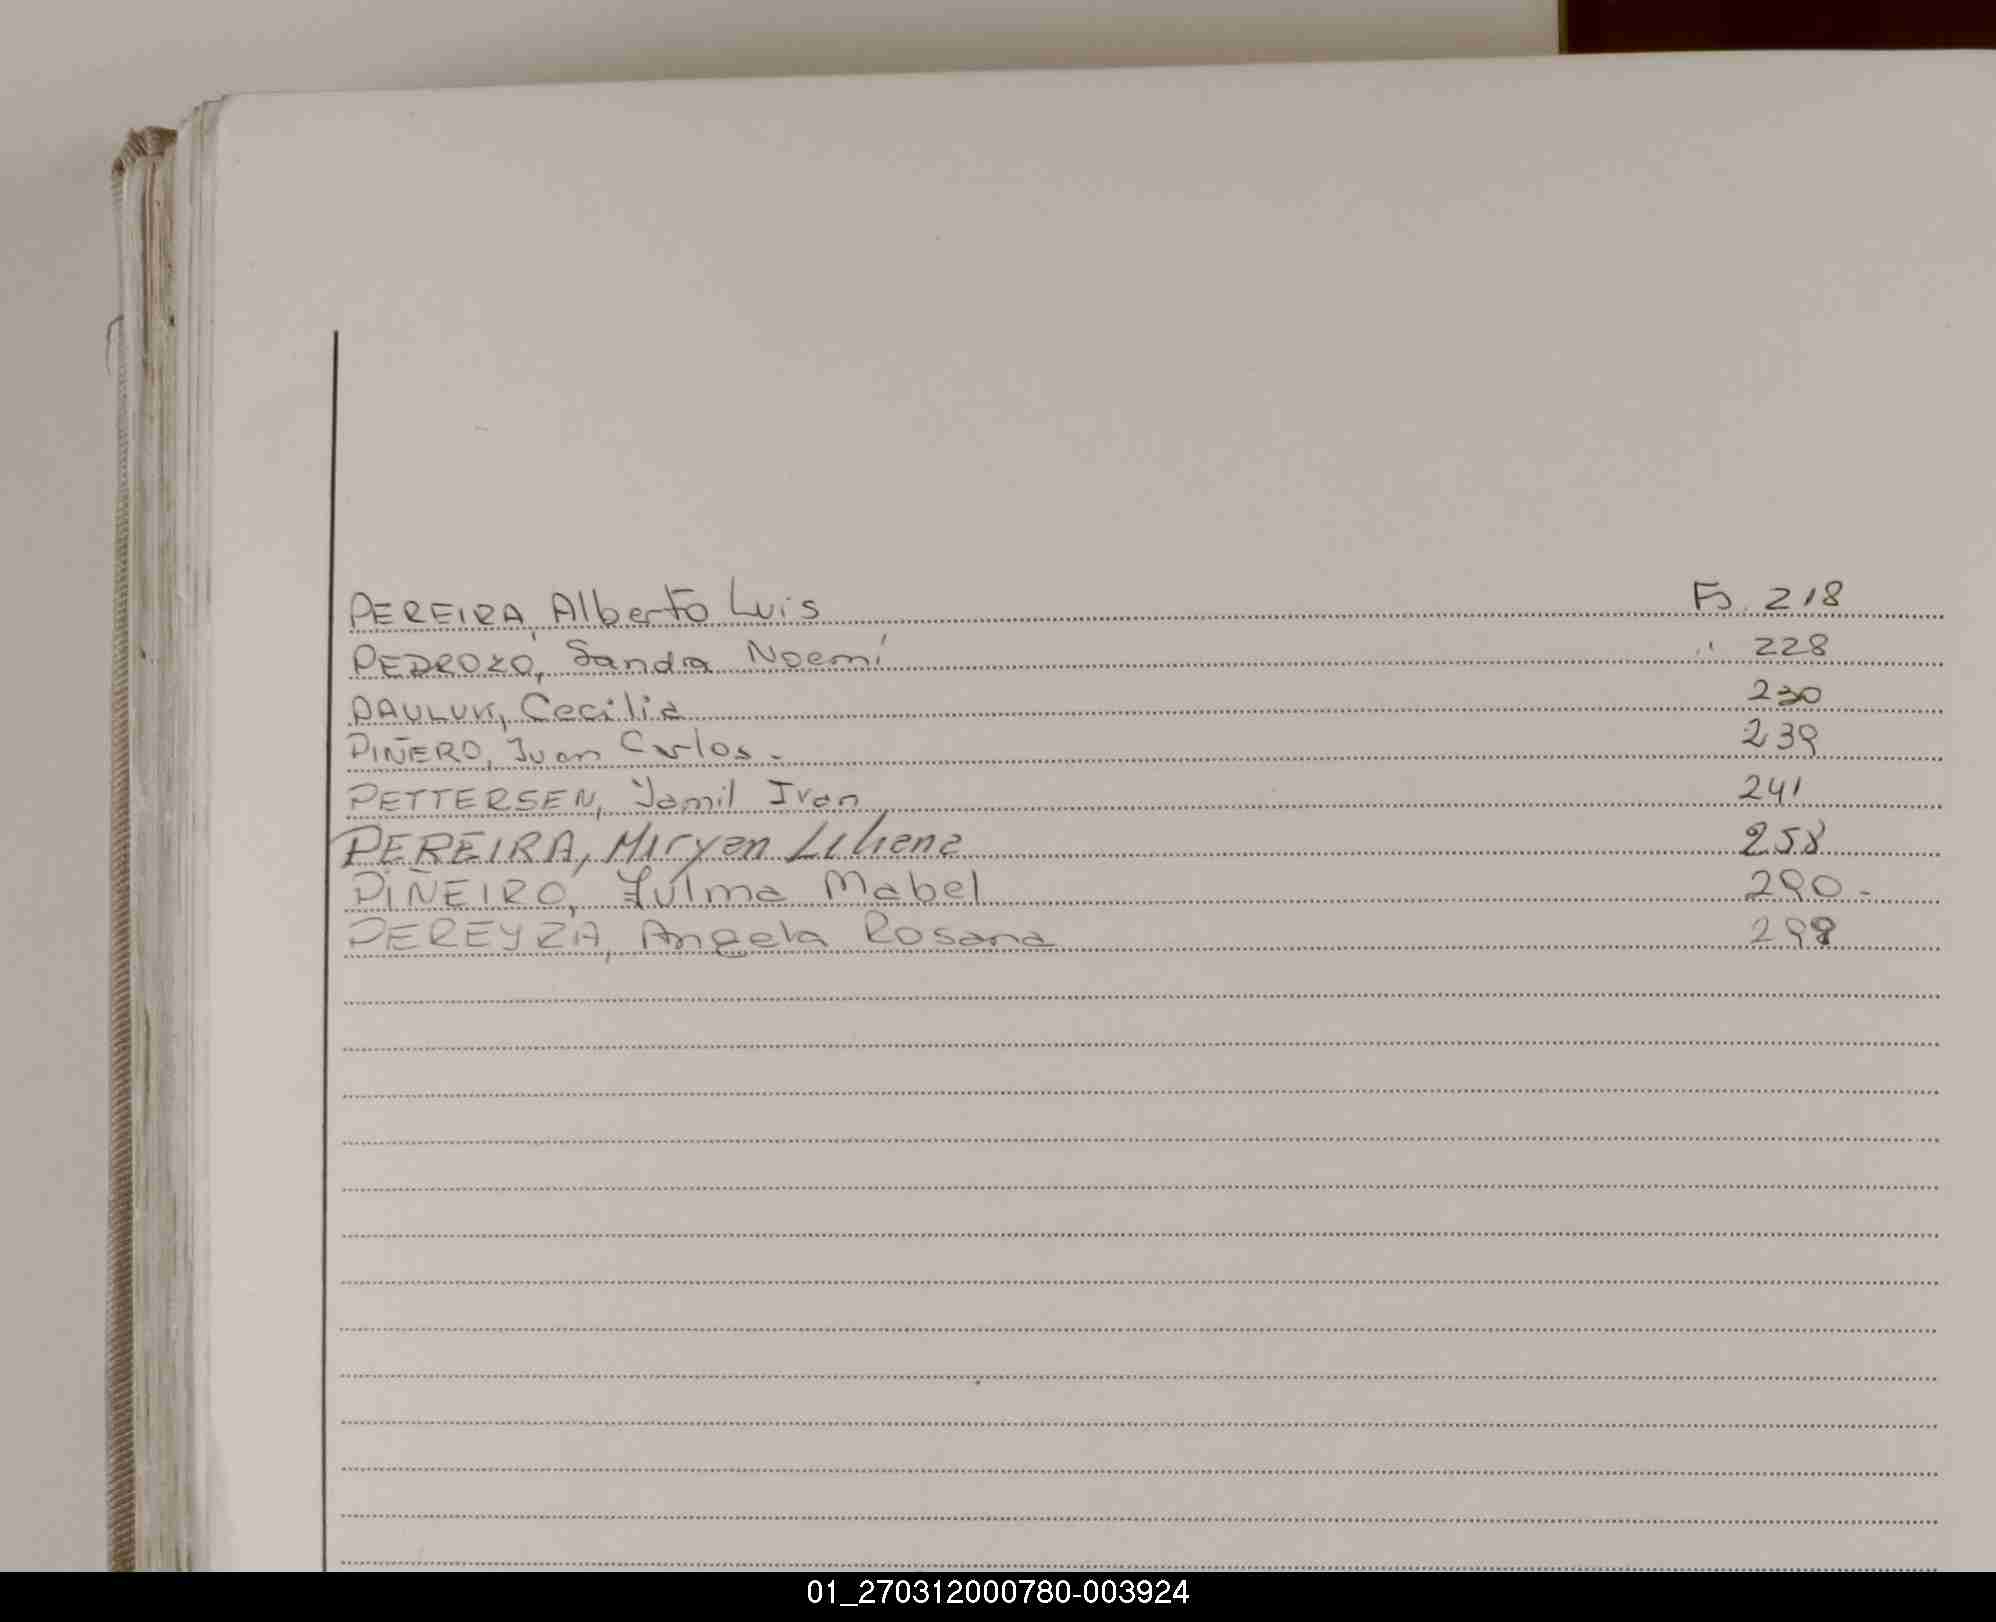 PEREIRA, Alberto Luis Fs. 218
PEDROZO, Sandra Noemí " 228
PAULUK, Cecilia 230
PIÑERO, Juan Carlos - 239
PETTERSEN, Yamil Ivan 241
PEREIRA, Miryan Liliana 258
PIÑEIRO, Zulma Mabel 290 -
PEREYRA, Angela Rosana
01_270312000780-003924